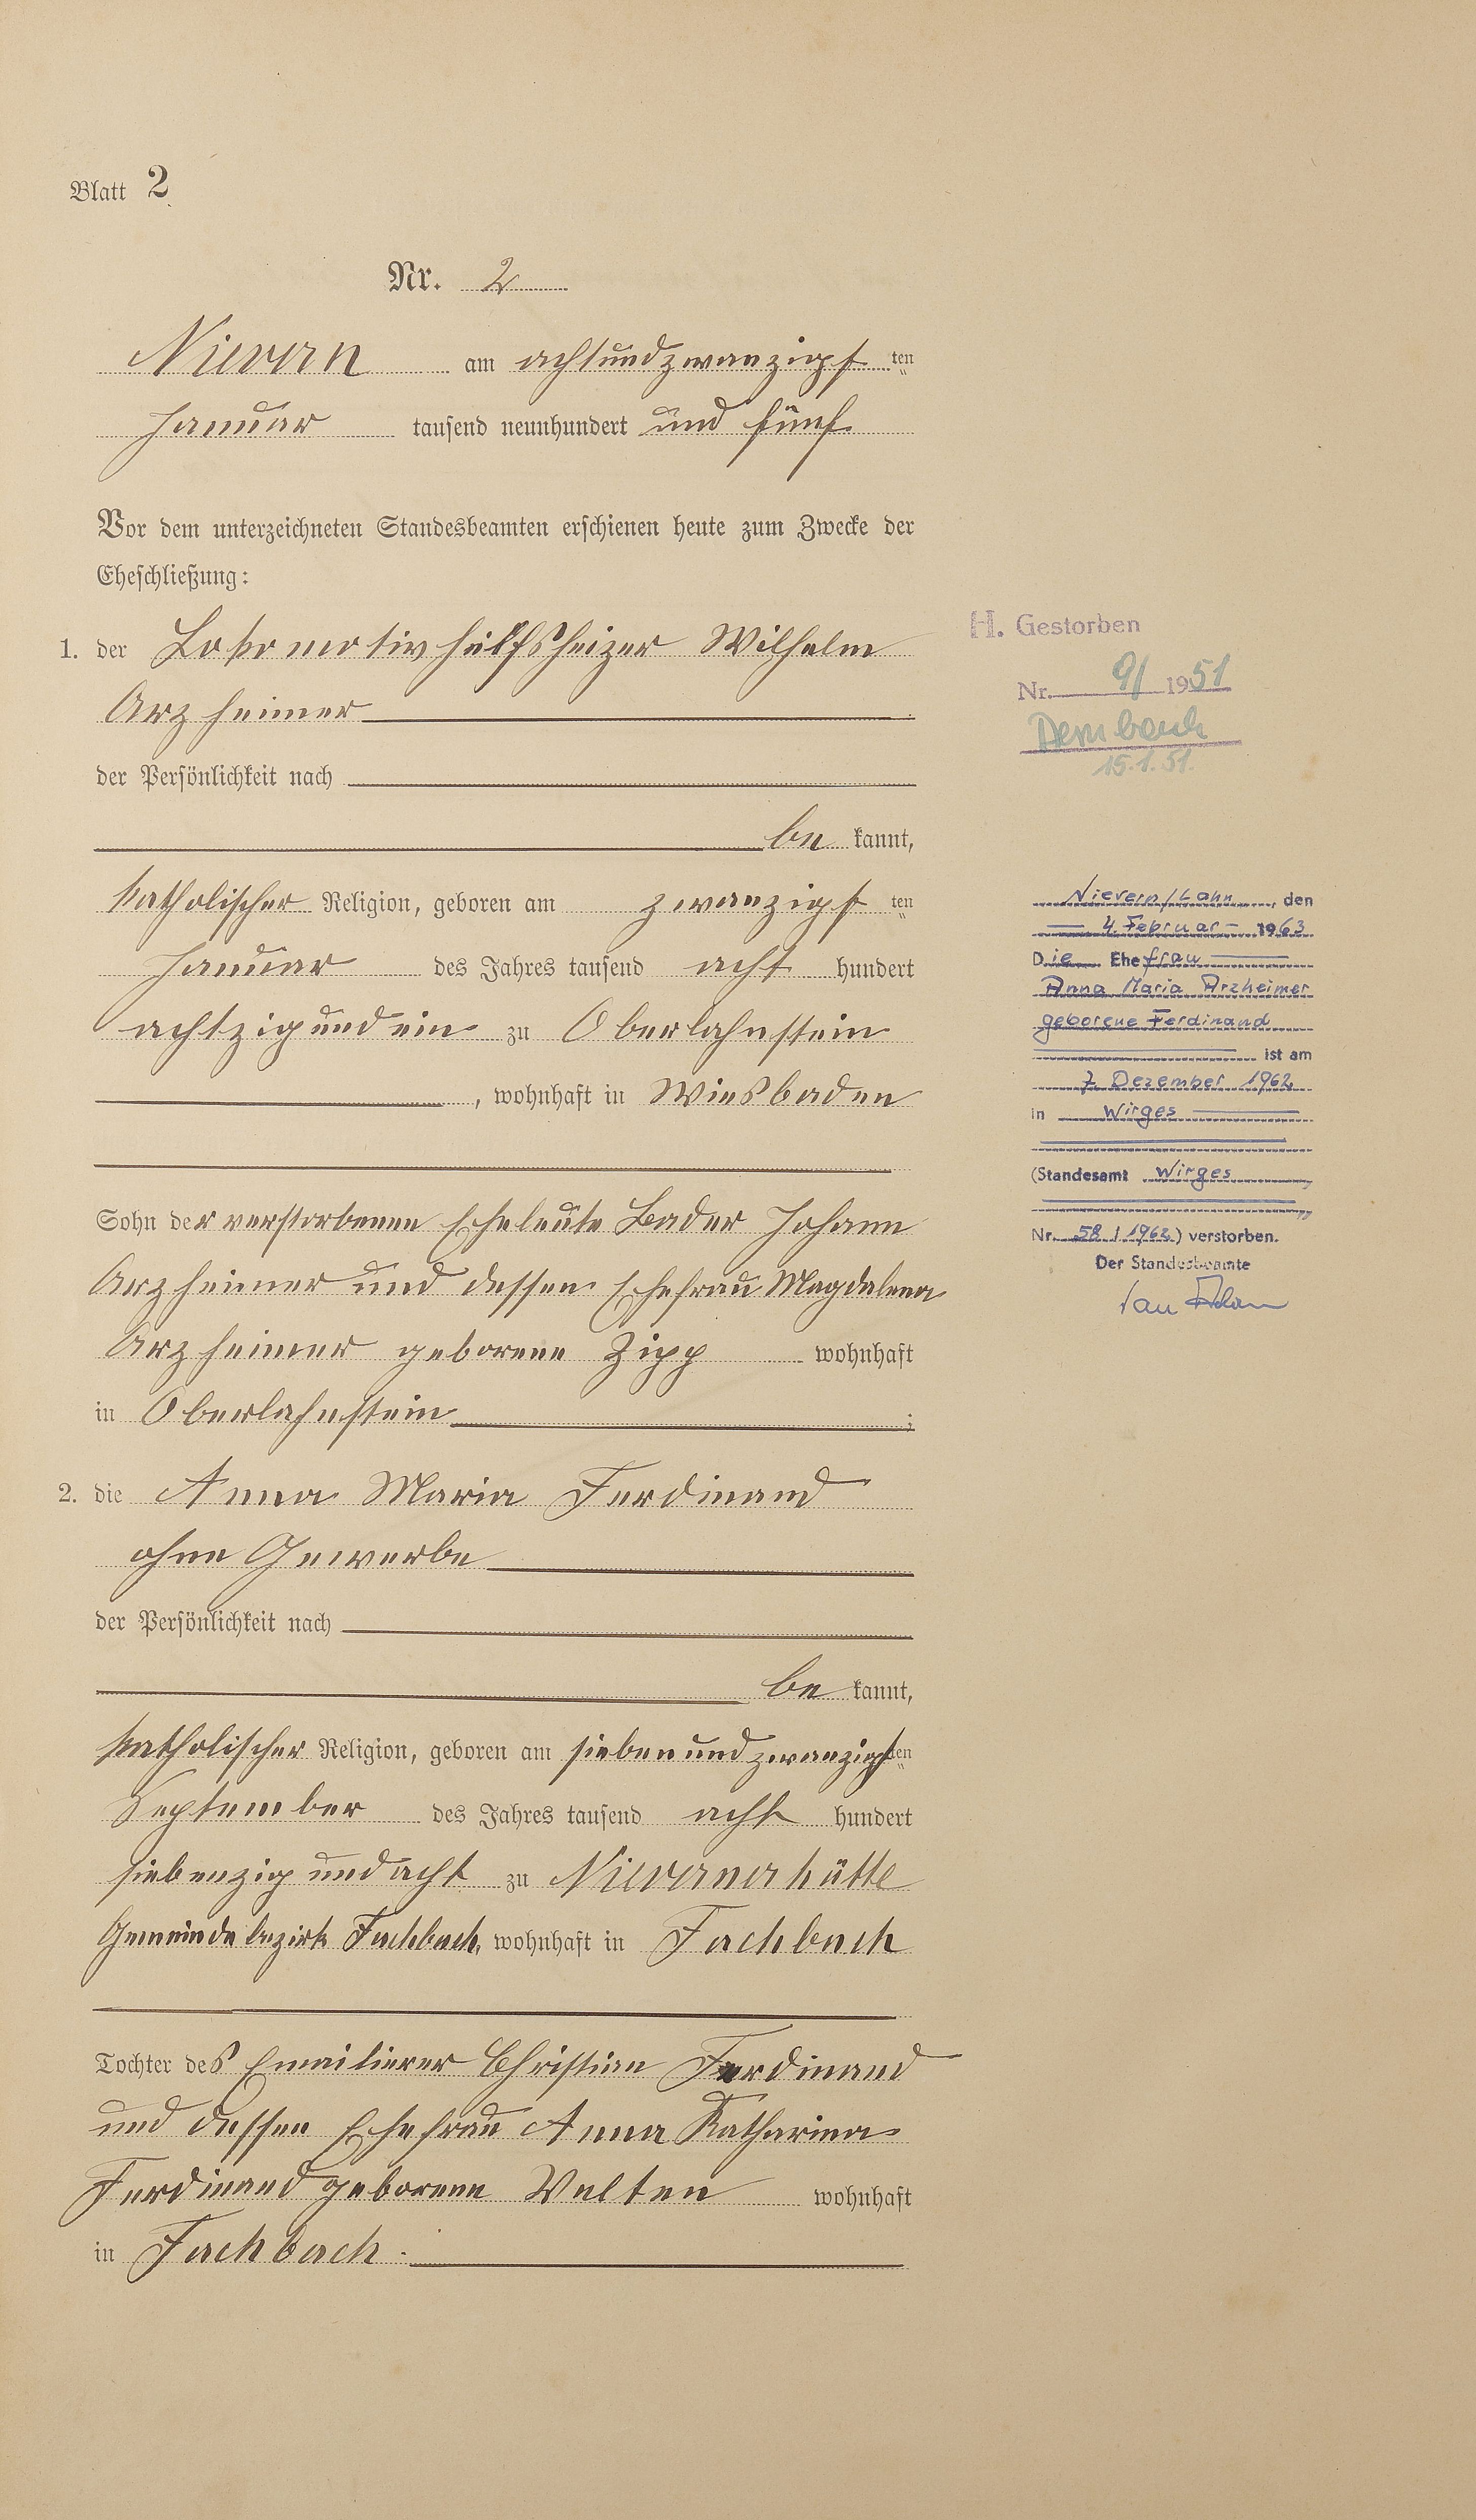 Blatt 2
Nr. 2
Nievern am achtundzwanzigst ten
Januar tausend neunhundert und fünf
Vor dem unterzeichneten Standesbeamten erschienen heute zum Zwecke der
Eheschließung:
1. der Lokomotivhülfsheizer Wilhelm
Arzheimer
der Persönlichkeit nach
be kannt,
katholischer Religion, geboren am zwanzigst ten
Januar des Jahres tausend acht hundert
achtzig und ein zu Oberlahnstein
, wohnhaft in Wiesbaden
Sohn der verstorbenen Eheleute Bader Johann
Arzheimer und dessen Ehefrau Magdalena
Arzheimer geborene Zipp wohnhaft
in Oberlahnstein ;
2. die Anna Maria Ferdinand
ohne Gewerbe
der Persönlichkeit nach
be kannt,
katholischer Religion, geboren am siebenundzwanzigst ten
September des Jahres tausend acht hundert
siebenzig und acht zu Nievernerhütte
Gemeindebezirk Fachbach, wohnhaft in Fachbach
Tochter des Emailierer Christian Ferdinand
und dessen Ehefrau Anna Katharina
Ferdinand geborene Welten wohnhaft
in Fachbach.
H. Gestorben
Nr. 9/ 1951
Dernbach
15.1.51.
Nievern/Lahn, den
4. Februar 1963
Die Ehefrau
Anna Maria Arzheimer
geborene Ferdinand
ist am
7. Dezember 1962
in Wirges
(Standesamt Wirges
Nr. 58 / 1962) verstorben.
Der Standesbeamte